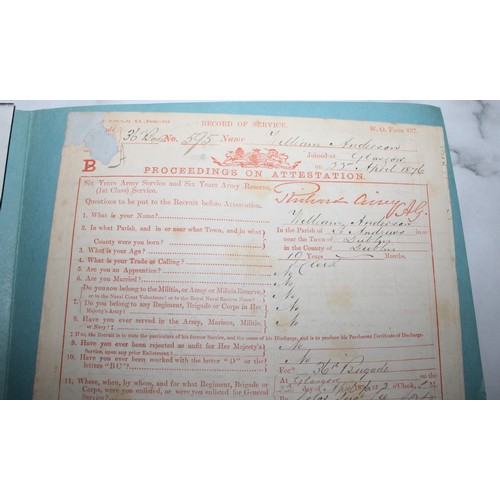 RECORD OF SERVICE.
W. O. Form 437.
36 No. 595 Name William Anderson
Joined at Glasgow
on April 1876
B
PROCEEDINGS ON ATTESTATION.
Six Years Army Service and Six Years Army Reserve.
(1st Class) Service.
Richard Airey A.G.
Questions to be put to the Recruit before Attestation.
1. What is your Name? William Anderson
2. In what Parish, and in or near what Town, and in what County were you born?
In the Parish of St Andrews in or
near the Town of Dublin
in the County of Dublin
3. What is your Age? Years Months
4. What is your Trade or Calling?
5. Are you an Apprentice? No
6. Are you Married? No
7. Do you now belong to the Militia, or Army or Militia Reserve, or to the Naval Coast Volunteers? or to the Royal Naval Reserve? No
Do you now belong to any Regiment, Brigade or Corps in Her Majesty's Army? No
8. Have you ever served in the Army, Marines, Militia, or Navy? No
If so, the Recruit is to state the particulars of his former Service, and the cause of his Discharge, and is to produce his Parchment Certificate of Discharge.
9. Have you ever been rejected as unfit for Her Majesty's Service, upon any prior Enlistment? No
10. Have you ever been worked with the letter "D" or the letters "BC"? No
For 36th Brigade
11. Where, when, by whom, and for what Regiment, Brigade or Corps, were you enlisted, or were you enlisted for General Service?
At Glasgow on the
day of April 187 o'Clock, M.